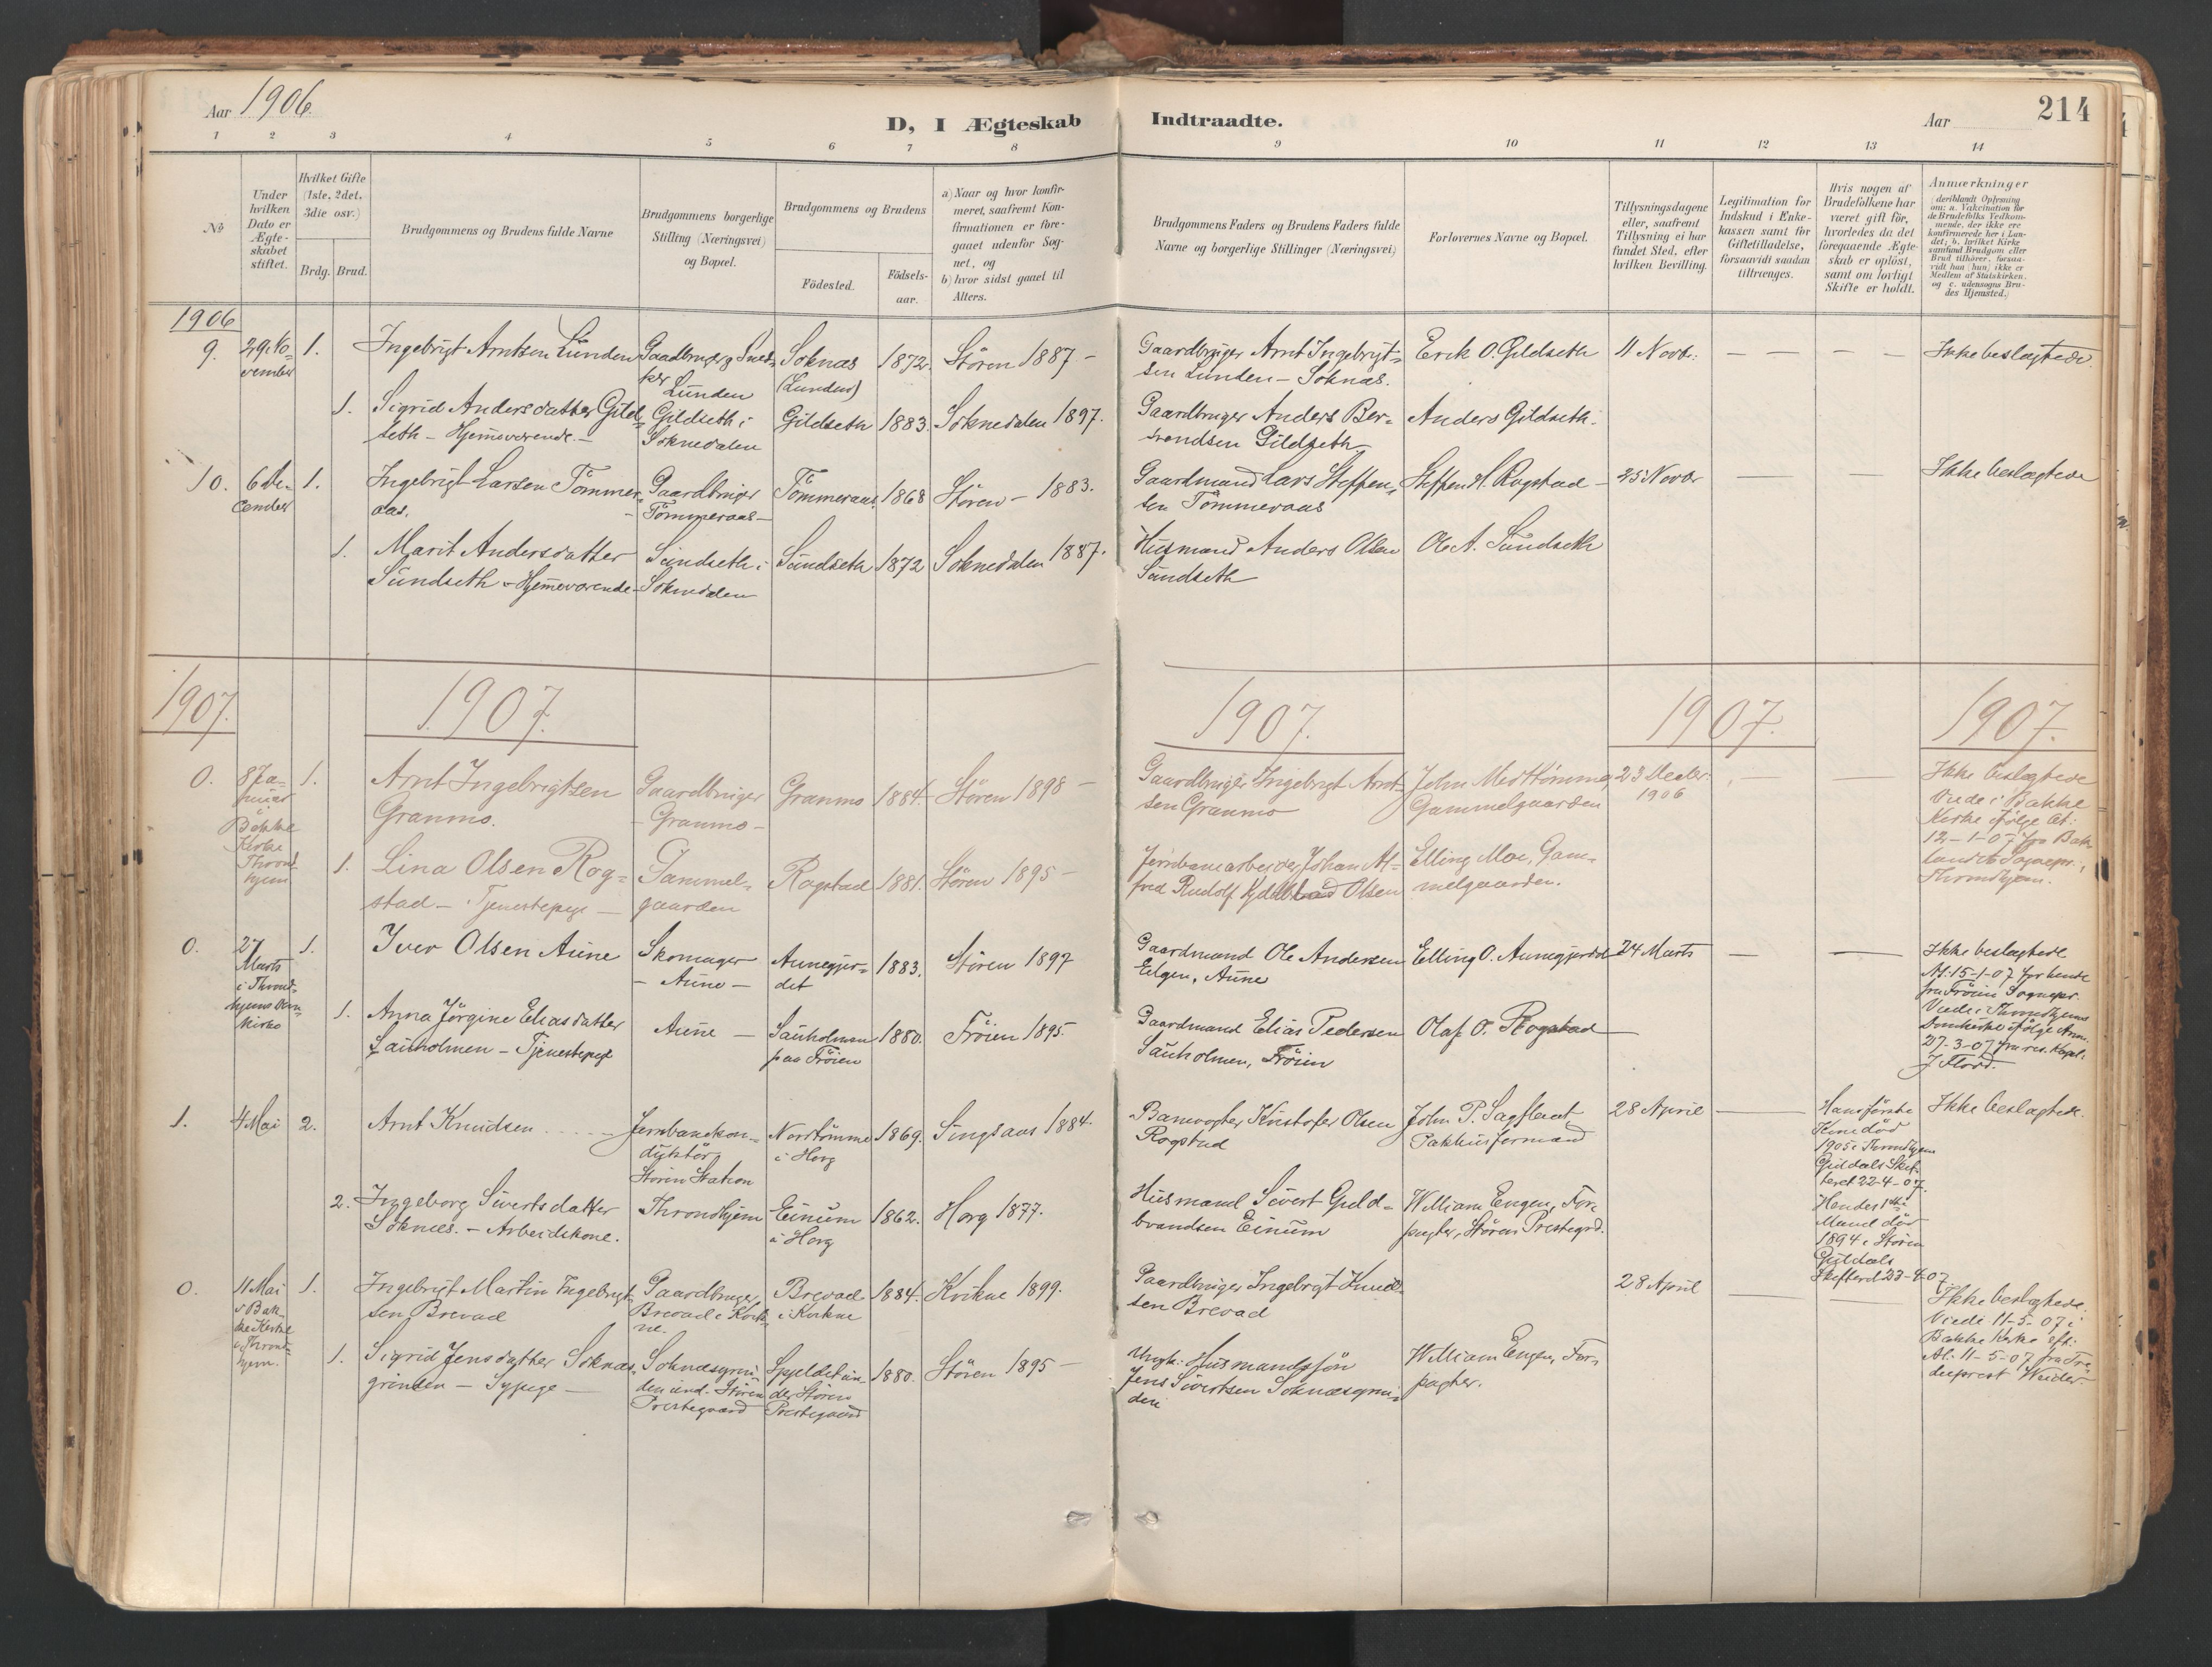 Aar 1906.
D, I Ægteskab Indtraadte.
Aar
214
1 2 3 4 5 6 7 8 9 10 11 12 13 14
№
Under hvilken Dato er Ægteskabet stiftet.
Hvilket Gifte (1ste, 2det, 3die osv.)
Brdg. Brud.
Brudgommens og Brudens fulde Navne
Brudgommens borgerlige Stilling (Næringsvei) og Bopæl.
Brudgommens og Brudens
Födested.
Födsels-aar.
a) Naar og hvor konfirmeret, saafremt Konfirmationen er foregaaet udenfor Sognet, og
b) hvor sidst gaaet til Alters.
Brudgommens Faders og Brudens Faders fulde Navne og borgerlige Stillinger (Næringsvei)
Forlovernes Navne og Bopæl.
Tillysningsdagene eller, saafremt Tillysning ei har fundet Sted, efter hvilken Bevilling.
Legitimation for Indskud i Enkekassen samt for Giftetilladelse, forsaavidt saadan tiltrænges.
Hvis nogen af Brudefolkene har været gift för, hvorledes da det foregaaende Ægteskab er oplöst, samt om lovligt Skifte er holdt.
Anmærkninger (deriblandt Oplysning om: a. Vakcination for de Brudefolks Vedkommende, der ikke ere konfirmerede her i Landet; b. hvilket Kirkesamfund Brudgom eller Brud tilhörer, forsaavidt han (hun) ikke er Medlem af Statskirken, og c. udensogns Brudes Hjemsted.)
1906
9. 29. November 1. Ingebrigt Arntsen Lunden Gaardbrug. & Snedker Lunden Soknæs (Lunden) 1872. Stören 1887 – Gaardbruger Arnt Ingebrigtsen Lunden – Soknæs. Erik O. Gildseth 11 Novb. – – – – Ikke beslægtede.
1. Sigrid Andersdatter Gildseth – Hjemmeværende. – Gildseth i Soknedalen Gildseth 1883. Soknedalen 1897. Gaardbruger Anders Berendsen Gildseth Anders Gildseth.
10. 6 December 1. Ingebrigt Larsen Tömmeraas. Gaardbruger Tömmeraas – Tömmeraas 1868 Stören – 1883. Gaardmand Lars Steffensen Tömmeraas Steffen H. Rogstad – 25 Novbr – – Ikke beslægtede
1. Marit Andersdatter Sundseth – Hjemmeværende – Sundseth i Soknedalen Sundseth 1872 Soknedalen 1887. Husmand Anders Olsen Sundseth Ole A. Sundseth
1907. 1907. 1907. 1907. 1907.
0. 8 Januar Bakke Kirke Throndhjem 1. Arnt Ingebrigtsen Granmo. Gaardbruger – Granmo – Granmo 1884. Stören 1898 – Gaardbruger Ingebrigt Arntsen Granmo John Medtömme, Gammelgaarden 23 Decbr. 1906 – – Ikke beslægtede Viede i Bakke Kirke ifölge At. 12-1-07 fra Baklandets Sognepr., Throndhjem.
1. Lina Olsen Rogstad – Tjenestepige – Gammelgaarden Rogstad 1881. Stören 1895 – Jernbanearbeider Johan Alfred Rudolf Kjellstad Olsen Elling Moe, Gammelgaarden.
0. 27 Marts i Throndhjems Domkirke 1. Iver Olsen Aune Skomager – Aune – Aunegjerdet 1883. Stören 1897 Gaardmand Ole Andersen Elgen, Aune Elling O. Aunegjerdet 24 Marts – – Ikke beslægtede At. 15-1-07 for hende fra Fröien Sognepr. Viede i Throndhjems Domkirke ifölge Anm. 27-3-07 fra res. Kapel. J. Flood.
1. Anna Jörgine Eliasdatter Sauholmen – Tjenestepige Aune – Sauholmen paa Fröien 1880. Fröien 1895. Gaardmand Elias Pedersen Sauholmen, Fröien Olaf O. Rogstad –
1. 4 Mai 2. Arnt Knudsen Jernbanekonduktör Stören Station Nordtömme i Horg 1869. Singsaas 1884. Banevogter Kristofer Olsen Rogstad John P. Sagflaat, Pakhusformand 28 April – Hans förste Kone död 1905 i Throndhjem Gjeldals Skifteret 22-4-07. Hendes 1ste Mand död 1894 i Stören Gjeldals Skifteret 23-4-07 Ikke beslægtede.
2. Ingeborg Sivertsdatter Soknæs. – Arbeidskone. Throndhjem Einum i Horg 1862. Horg 1877. Husmand Sivert Guldbrandsen Einum William Engen, Forpagter, Stören Prestegrd.
0. 11 Mai i Bakke Kirke i Throndhjem. 1. Ingebrigt Martin Ingebrigtsen Brevad Gaardbruger, Brevad i Kvikne. Brevad i Kvikne 1884. Kvikne 1899. Gaardbruger Ingebrigt Knudsen Brevad 28 April – – Ikke beslægtede. Viede 11-5-07 i Bakke Kirke eft. At. 11-5-07 fra Tredieprest Weider.
1. Sigrid Jensdatter Soknæsgrinden – Sypige – Soknæsgrinden und. Stören Prestegaard Spjeldet under Stören Prestegaard 1880. Stören 1895 – Ungk. Husmandssön Jens Sivertsen Soknæsgrinden William Engen, Forpagter.